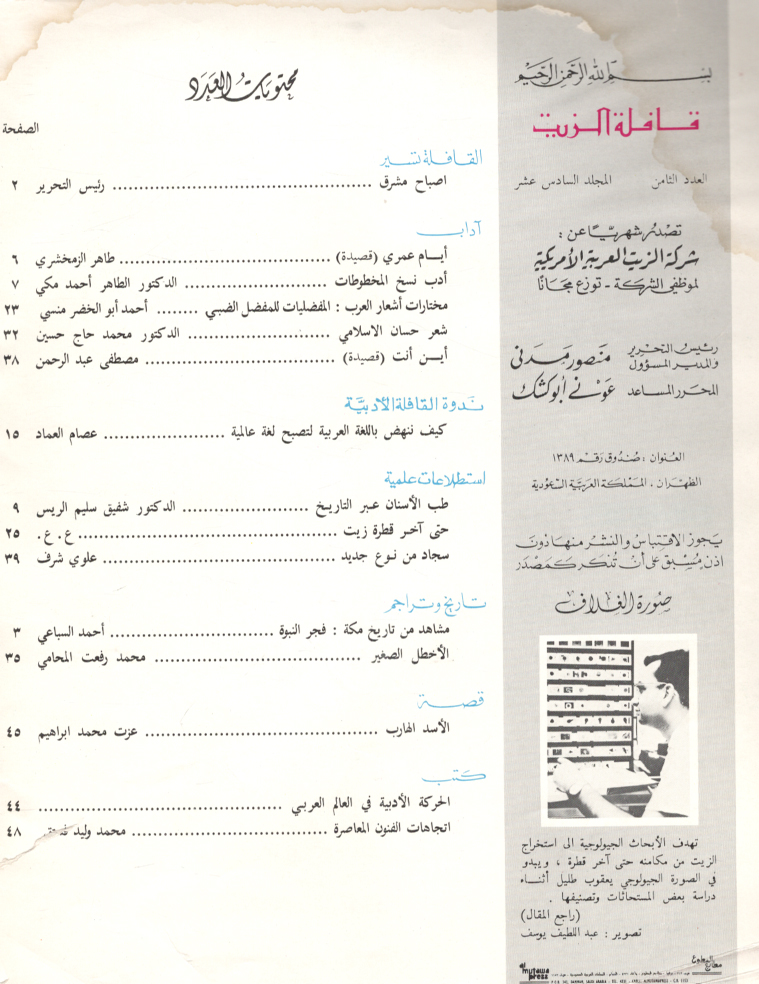 بسم الله الرحمن الرحيم
قافلة الزيت
العدد الثامن المجلد السادس عشر
تصدر شهريًا عن :
شركة الزيت العربية الأمريكية
لموظفي الشركة - توزع مجانًا
رئيس التحرير والمدير المسؤول منصور مدني
المحرر المساعد عوني أبو كشك
العنوان : صندوق رقم ١٣٨٩
الظهران ، المملكة العربية السعودية
يجوز الاقتباس والنشر منها دون
اذن مسبق على أن تذكر كمصدر
صورة الغلاف
تهدف الأبحاث الجيولوجية الى استخراج
الزيت من مكامنه حتى آخر قطرة ، ويبدو
في الصورة الجيولوجي يعقوب طليل أثناء
دراسة بعض المستحاثات وتصنيفها .
(راجع المقال)
تصوير : عبد اللطيف يوسف
مطابع المطوع
al mutawa press
محتويات العدد
الصفحة
القافلة تسير
اصباح مشرق ... رئيس التحرير ٢
آداب
أيام عمري (قصيدة) ... طاهر الزمخشري ٦
أدب نسخ المخطوطات ... الدكتور الطاهر أحمد مكي ٧
مختارات أشعار العرب : المفضليات للمفضل الضبي ... أحمد أبو الخضر منسي ٢٣
شعر حسان الاسلامي ... الدكتور محمد حاج حسين ٣٢
أين أنت (قصيدة) ... مصطفى عبد الرحمن ٣٨
ندوة القافلة الأدبية
كيف ننهض باللغة العربية لتصبح لغة عالمية ... عصام العماد ١٥
استطلاعات علمية
طب الأسنان عبر التاريخ ... الدكتور شفيق سليم الريس ٩
حتى آخر قطرة زيت ... ع . ع . ٢٥
سجاد من نوع جديد ... علوي شرف ٣٩
تاريخ وتراجم
مشاهد من تاريخ مكة : فجر النبوة ... أحمد السباعي ٣
الأخطل الصغير ... محمد رفعت المحامي ٣٥
قصة
الأسد الهارب ... عزت محمد ابراهيم ٤٥
كتب
الحركة الأدبية في العالم العربي ... ٤٤
اتجاهات الفنون المعاصرة ... محمد وليد ٤٨